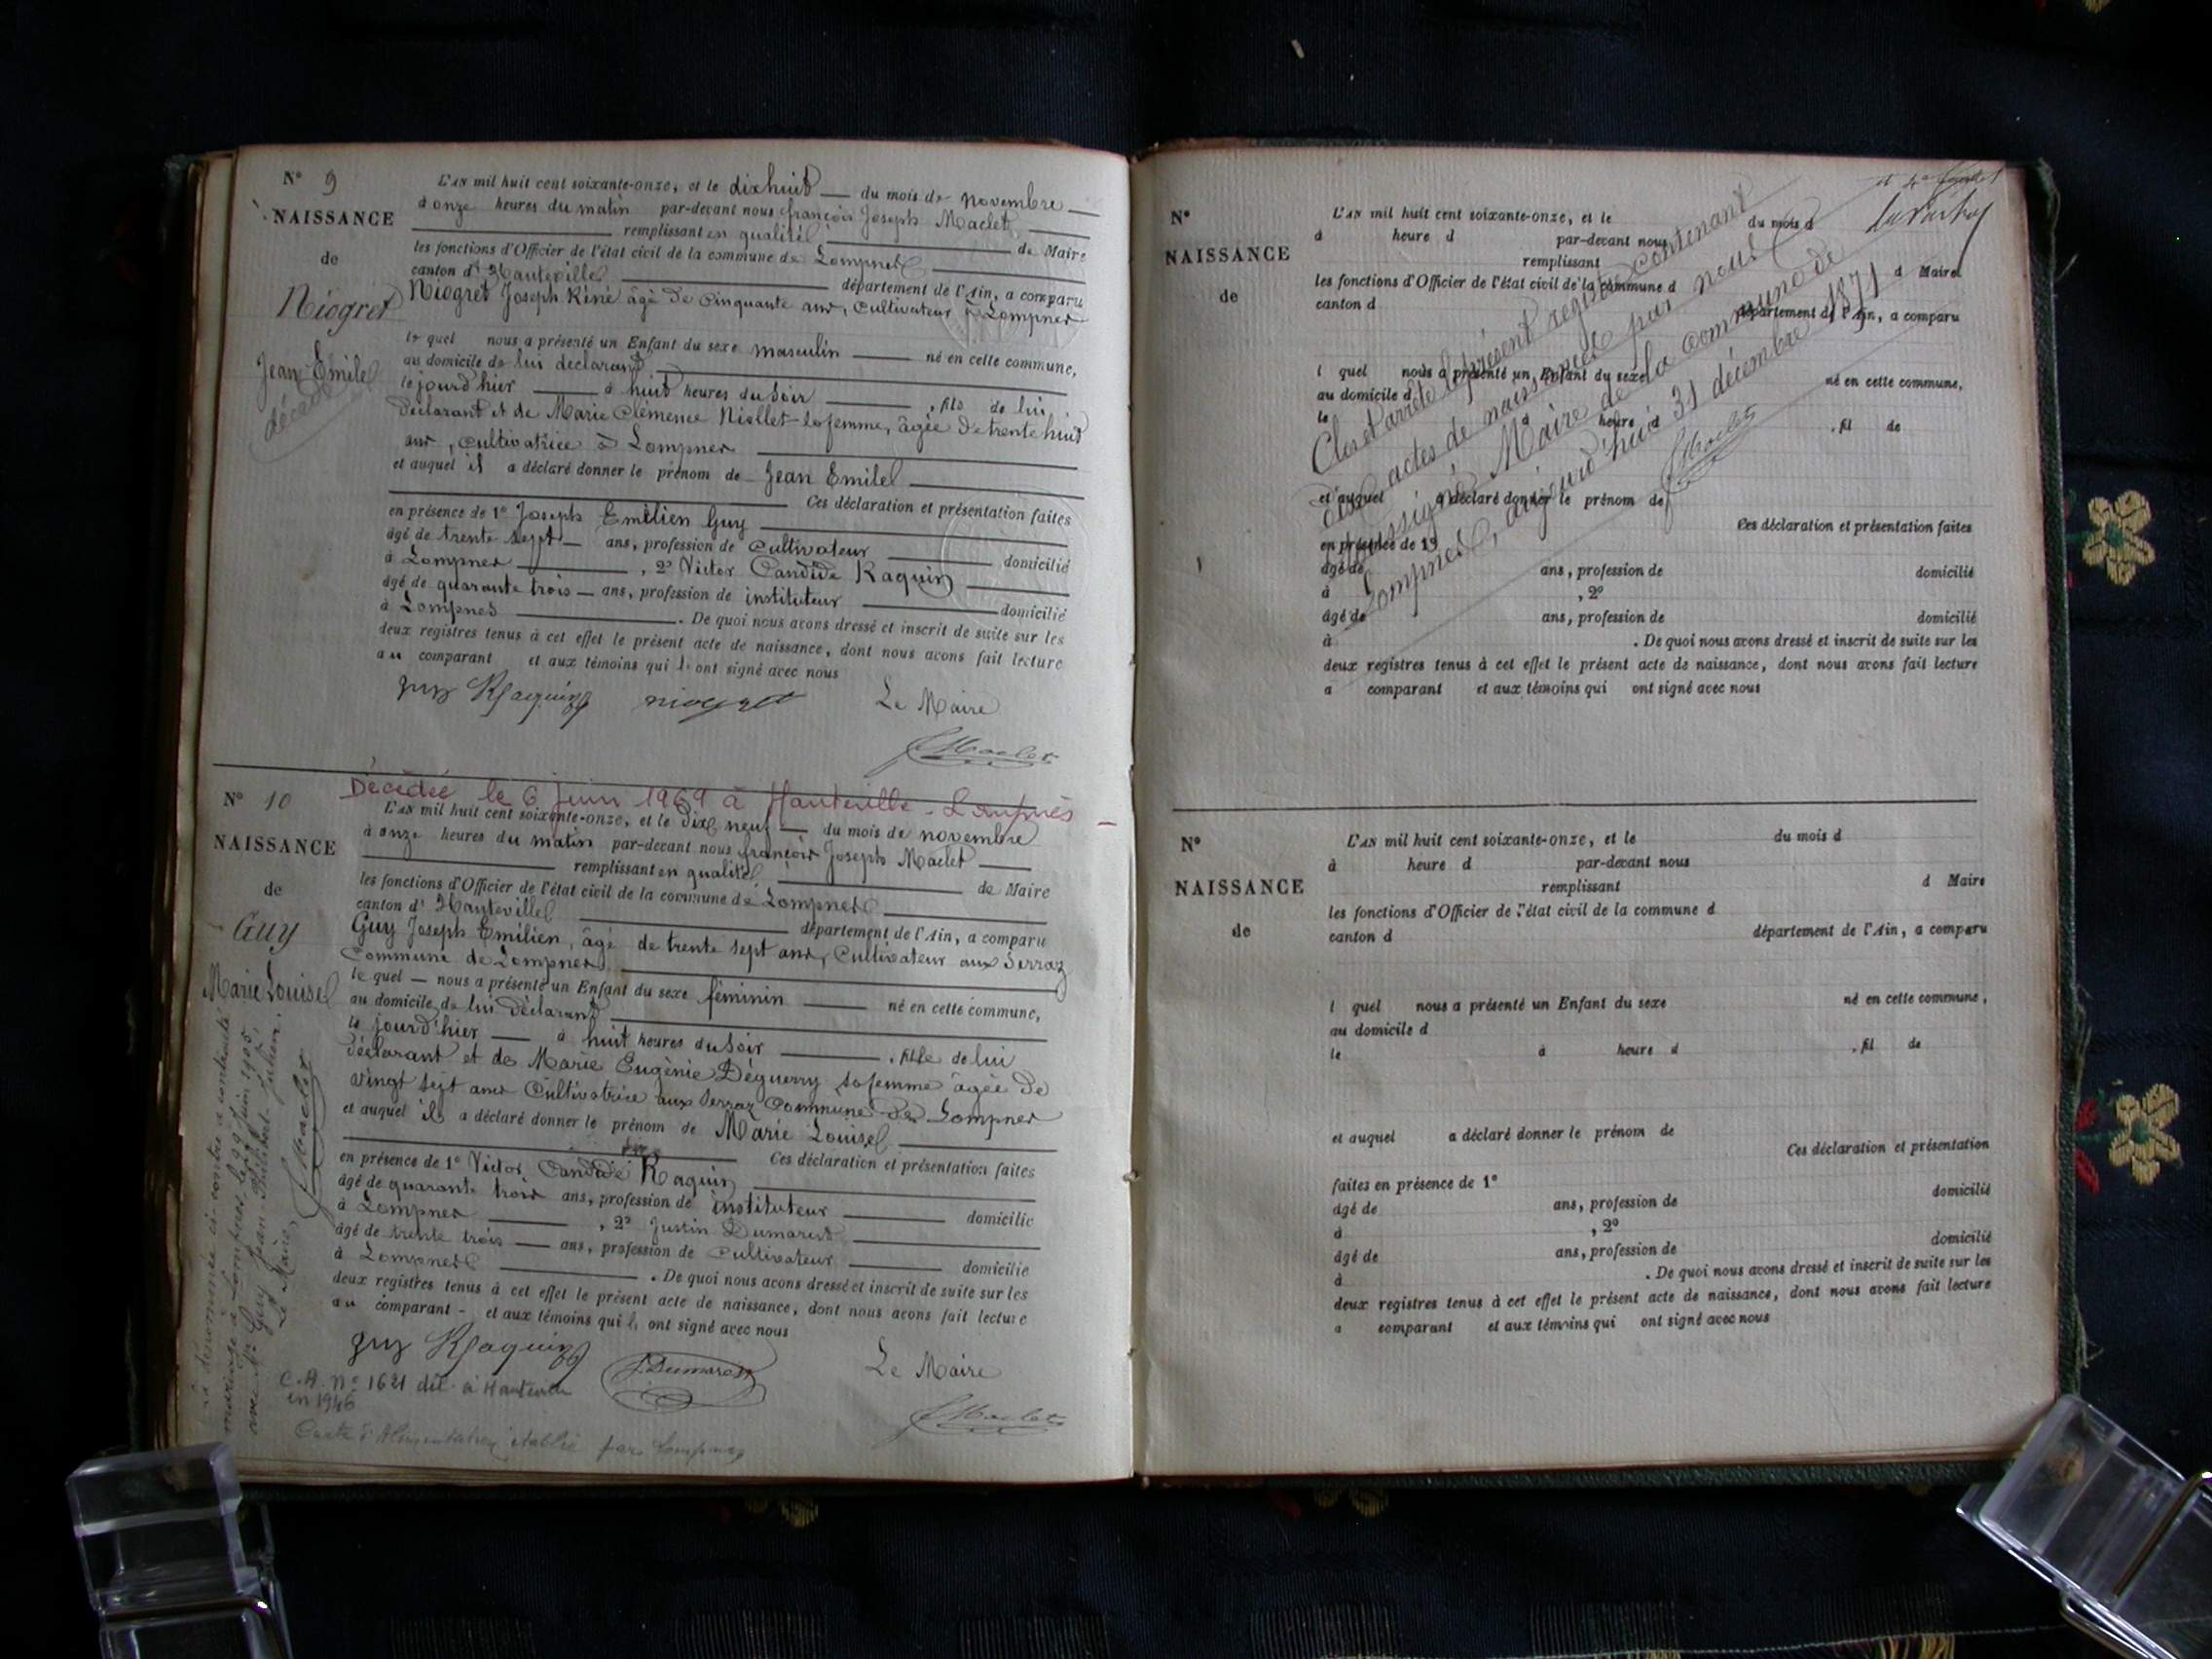 N° 9
NAISSANCE
de
Niogret
Jean Emile
décédé
L'AN mil huit cent soixante-onze, et le dix huit du mois de novembre
à onze heures du matin par-devant nous françois Joseph Maclet
remplissant en qualité de Maire
les fonctions d'Officier de l'état civil de la commune de Lompnes
canton d'Hauteville département de l'Ain, a comparu
Niogret Joseph Réné âgé de Cinquante ans, Cultivateur à Lompnes
le quel nous a présenté un Enfant du sexe masculin né en cette commune,
au domicile de lui déclarant
le jourd'hier à huit heures du Soir , fils de lui
déclarant et de Marie Clémence Niollet sa femme, âgée de trente huit
ans, cultivatrice à Lompnes
et auquel il a déclaré donner le prénom de Jean Emile
Ces déclaration et présentation faites
en présence de 1° Joseph Emilien Guy
âgé de trente sept ans, profession de Cultivateur domicilié
à Lompnes , 2° Victor Candide Raquin
âgé de quarante trois ans, profession de instituteur domicilié
à Lompnes . De quoi nous avons dressé et inscrit de suite sur les
deux registres tenus à cet effet le présent acte de naissance, dont nous avons fait lecture
au comparant et aux témoins qui l'ont signé avec nous
guy Raquin niogret Le Maire
Maclet
Décédée le 6 juin 1969 à Hauteville-Lompnès
N° 10
NAISSANCE
de
Guy
Marie Louise
L'AN mil huit cent soixante-onze, et le dix neuf du mois de novembre
à onze heures du matin par-devant nous françois Joseph Maclet
remplissant en qualité de Maire
les fonctions d'Officier de l'état civil de la commune de Lompnes
canton d'Hauteville département de l'Ain, a comparu
Guy Joseph Emilien, âgé de trente sept ans, Cultivateur aux Serraz
Commune de Lompnes
le quel nous a présenté un Enfant du sexe féminin né en cette commune,
au domicile de lui Déclarant
le jourd'hier à huit heures du Soir , fille de lui
déclarant et de Marie Eugénie Déguerry sa femme âgée de
vingt sept ans Cultivatrice aux Serraz Commune de Lompnes
et auquel il a déclaré donner le prénom de Marie Louise
Ces déclaration et présentation faites
en présence de 1° Victor Candide Raquin
âgé de quarante trois ans, profession de instituteur domicilié
à Lompnes , 2° Justin Dumarest
âgé de trente trois ans, profession de Cultivateur domicilié
à Lompnes . De quoi nous avons dressé et inscrit de suite sur les
deux registres tenus à cet effet le présent acte de naissance, dont nous avons fait lecture
au comparant - et aux témoins qui l'ont signé avec nous
guy Raquin J. Dumarest Le Maire
Maclet
C.A. N° 1621 dél. à Hauteville
en 1946
Carte d'Alimentation établie par Lompnes
La dénommée ci-contre a contracté
mariage à Lompnes, le 29 juin 1905,
avec Mr Guy Jean-Philibert-Julien.
Le Maire,
Maclet
N°
NAISSANCE
de
L'AN mil huit cent soixante-onze, et le du mois d
à heure d par-devant nous
remplissant d Maire
les fonctions d'Officier de l'état civil de la commune d
canton d département de l'Ain, a comparu
l quel nous a présenté un Enfant du sexe né en cette commune,
au domicile d
le à heure d , fil de
et auquel a déclaré donner le prénom de
Ces déclaration et présentation faites
en présence de 1°
âgé de ans, profession de domicilié
à , 2°
âgé de ans, profession de domicilié
à . De quoi nous avons dressé et inscrit de suite sur les
deux registres tenus à cet effet le présent acte de naissance, dont nous avons fait lecture
a comparant et aux témoins qui ont signé avec nous
Clos et arrêté le présent registre contenant
dix actes de naissances par nous
soussigné Maire de la commune de
Lompnes, aujourd'hui 31 décembre 1871
Maclet
N°
NAISSANCE
de
L'AN mil huit cent soixante-onze, et le du mois d
à heure d par-devant nous
remplissant d Maire
les fonctions d'Officier de l'état civil de la commune d
canton d département de l'Ain, a comparu
l quel nous a présenté un Enfant du sexe né en cette commune,
au domicile d
le à heure d , fil de
et auquel a déclaré donner le prénom de
Ces déclaration et présentation
faites en présence de 1°
âgé de ans, profession de domicilié
à , 2°
âgé de ans, profession de domicilié
à . De quoi nous avons dressé et inscrit de suite sur les
deux registres tenus à cet effet le présent acte de naissance, dont nous avons fait lecture
a comparant et aux témoins qui ont signé avec nous